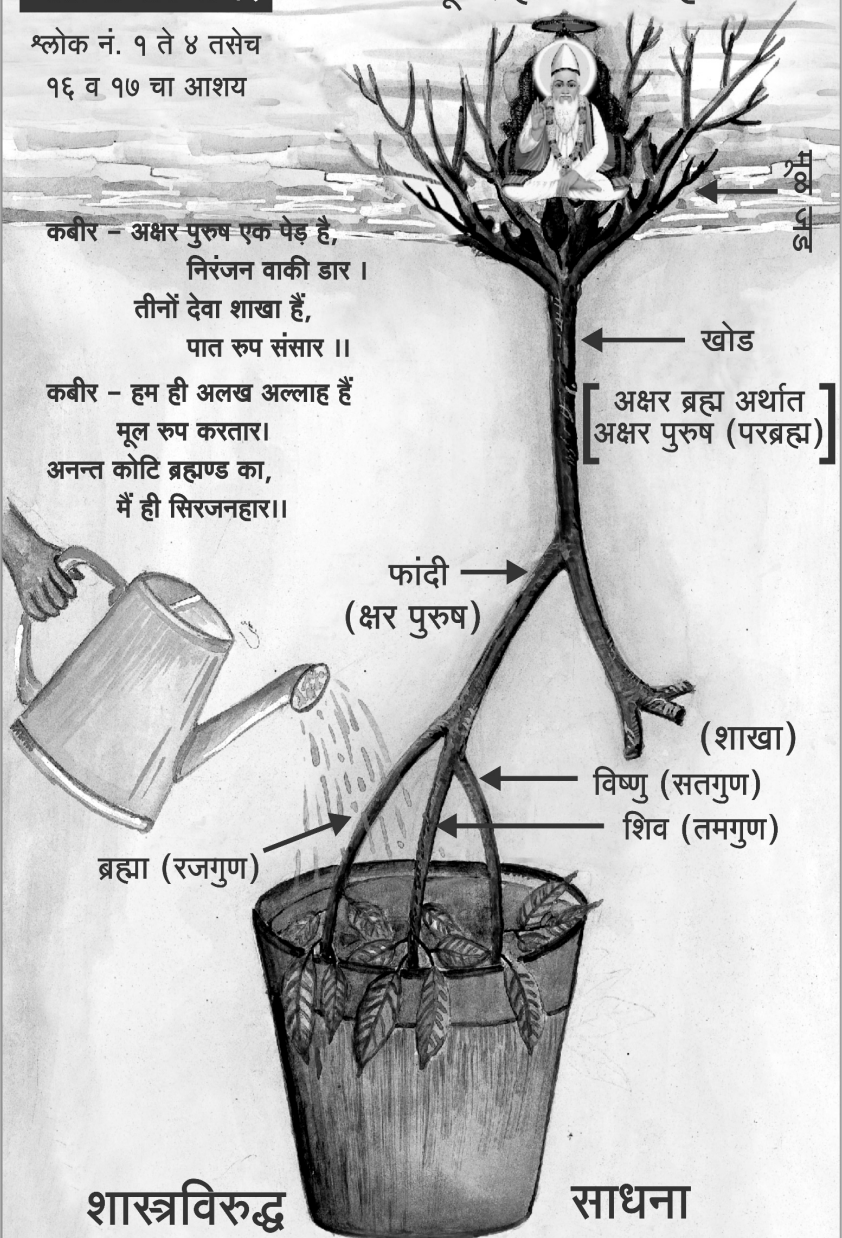 श्लोक नं. १ ते ४ तसेच
१६ व १७ चा आशय
मूळ जड
कबीर – अक्षर पुरुष एक पेड़ है,
निरंजन वाकी डार ।
तीनों देवा शाखा हैं,
पात रुप संसार ।।
खोड
कबीर – हम ही अलख अल्लाह हैं
मूल रुप करतार।
अनन्त कोटि ब्रह्मण्ड का,
मैं ही सिरजनहार।।
[अक्षर ब्रह्म अर्थात
अक्षर पुरुष (परब्रह्म)]
फांदी
(क्षर पुरुष)
(शाखा)
विष्णु (सतगुण)
शिव (तमगुण)
ब्रह्मा (रजगुण)
शास्त्रविरुद्ध साधना